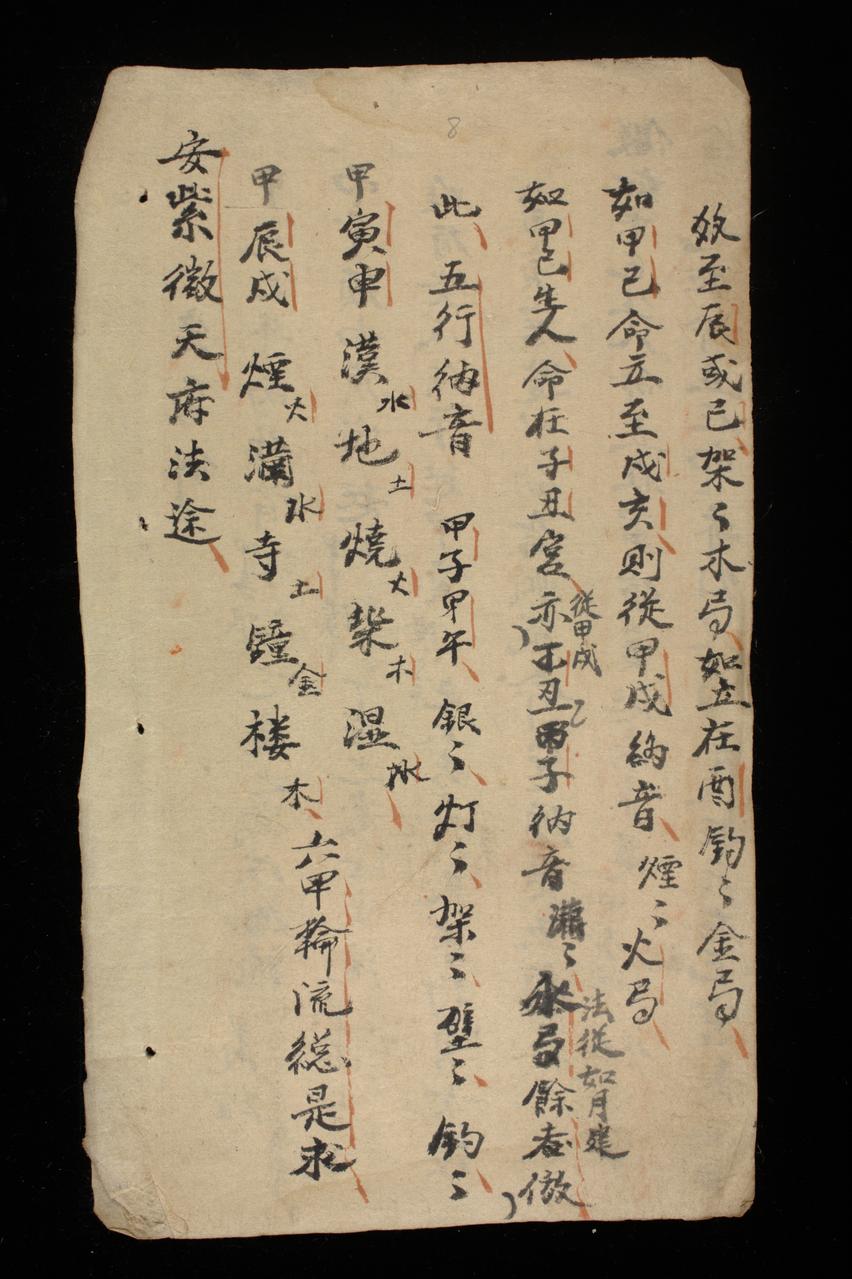 8
放至辰或已架々木局如立在酉鈎々金局
如甲己命立至戌亥則從甲戌納音煙々火局
如甲己生人命在子丑宮亦丁丑甲子納音滿々水局餘者倣
從甲戌 乙
法從如月建
此五行納音 甲子甲午 銀々灯々架々壁々鈎々
甲寅申 漢水 地土 燒火 柴木 濕水
甲辰戌 煙火 滿水 寺土 鐘金 楼木 六甲輪流總是求
安紫微天府法途